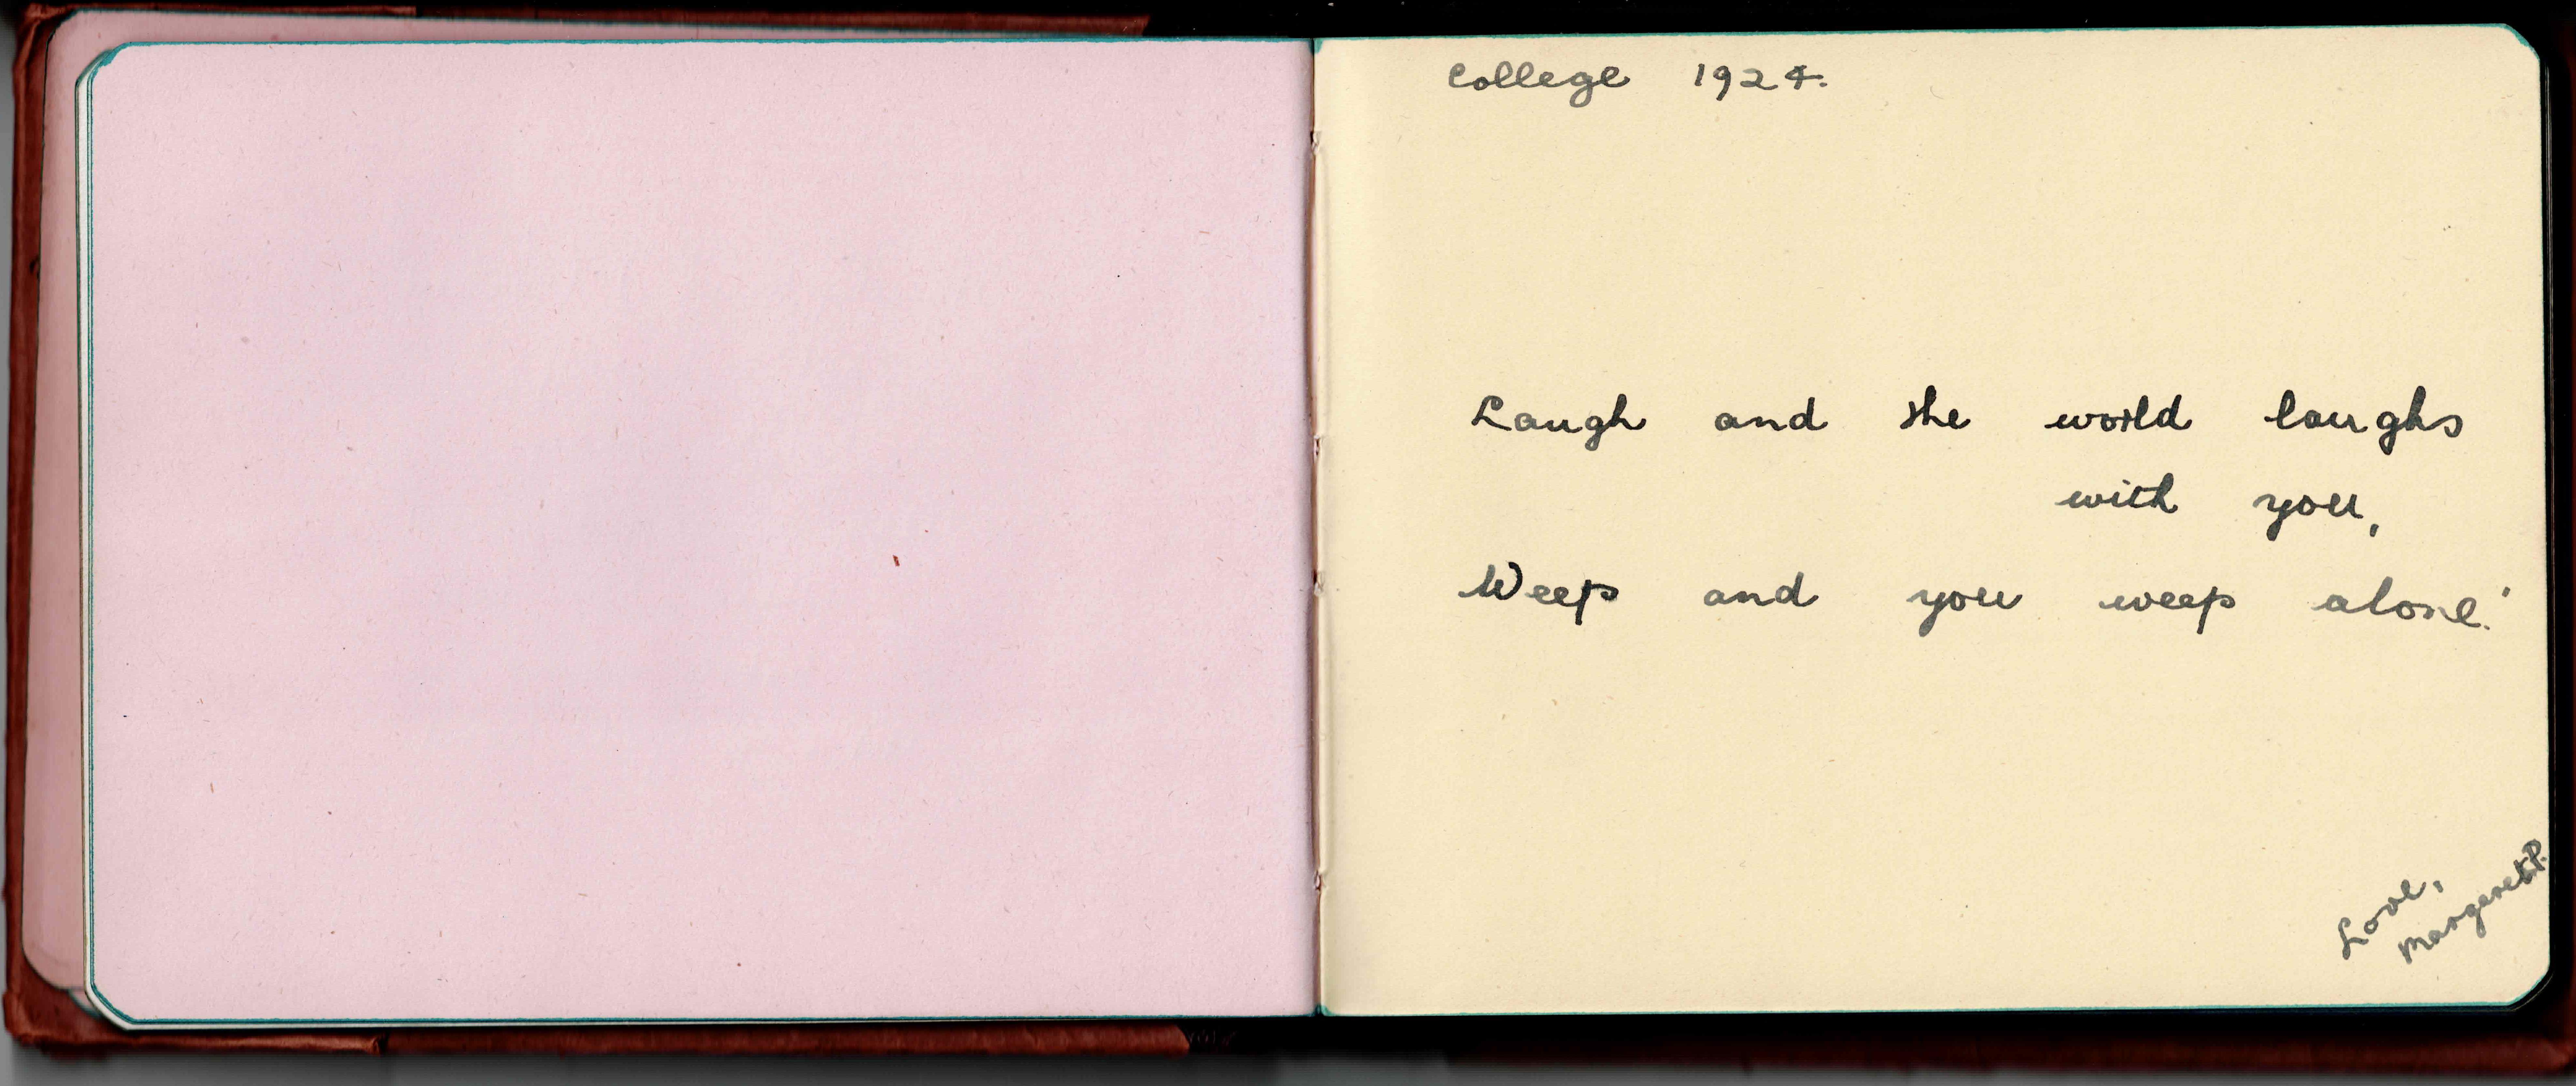 College 1924.
Laugh and the world laughs
with you,
Weep and you weep alone!
Love,
Margaret P.